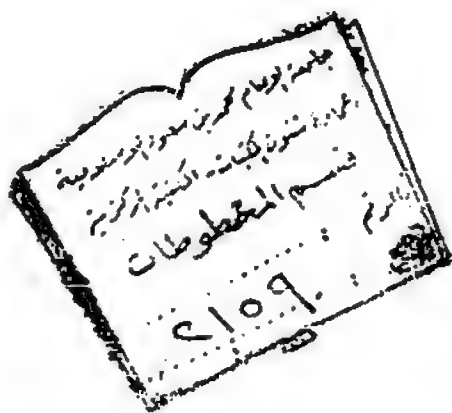 جامعة الإمام محمد بن سعود الإسلامية
عمادة شئون المكتبات المكتبة المركزية
قسم المخطوطات
الرقم :
٢١٥٩